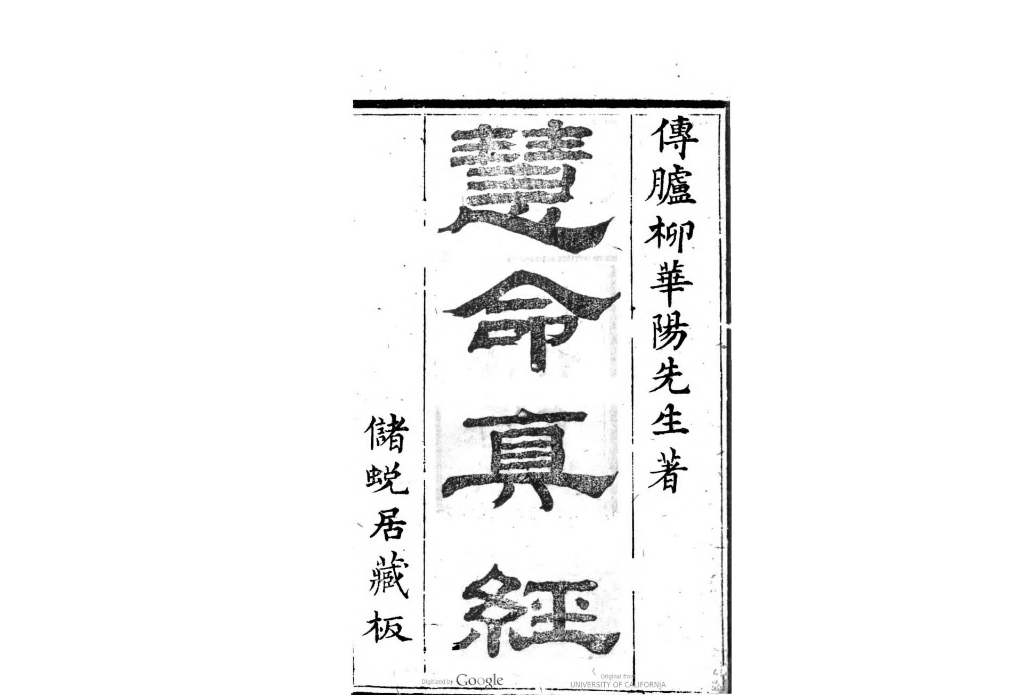 傳臚柳華陽先生著
慧命真經
儲蛻居藏板
Digitized by Google
Original from
UNIVERSITY OF CALIFORNIA